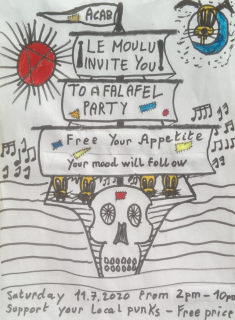 ACAB
LE MOULU
INVITE YOU
TO A FALAFEL
PARTY
Free Your Appetite
Your mood will follow
Saturday 11.7.2020 from 2pm - 10pm
Support your local punks - Free price